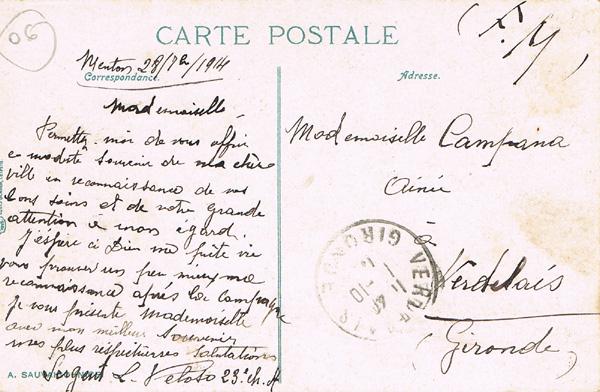 06
CARTE POSTALE
F. M
Menton 28/7bre/1914
Correspondance.
Adresse.
Mademoiselle
Permettez-moi de vous offrir
ce modeste souvenir de ma chère
ville en reconnaissance de vos
bons soins et de votre grande
attention à mon égard.
J'éspère si Dieu me prête vie
vous prouver un peu mieux ma
reconnaissance après la campagne
Je vous présente Mademoiselle
avec mon meilleur souvenir
mes plus respectueuses salutations
Sergent L. Veloso 23e Ch. A
Mademoiselle Campana
Ainée
à
Verdelais
(Gironde)
VERDELAIS
GIRONDE
11 40
1-10
A. SAUVAN